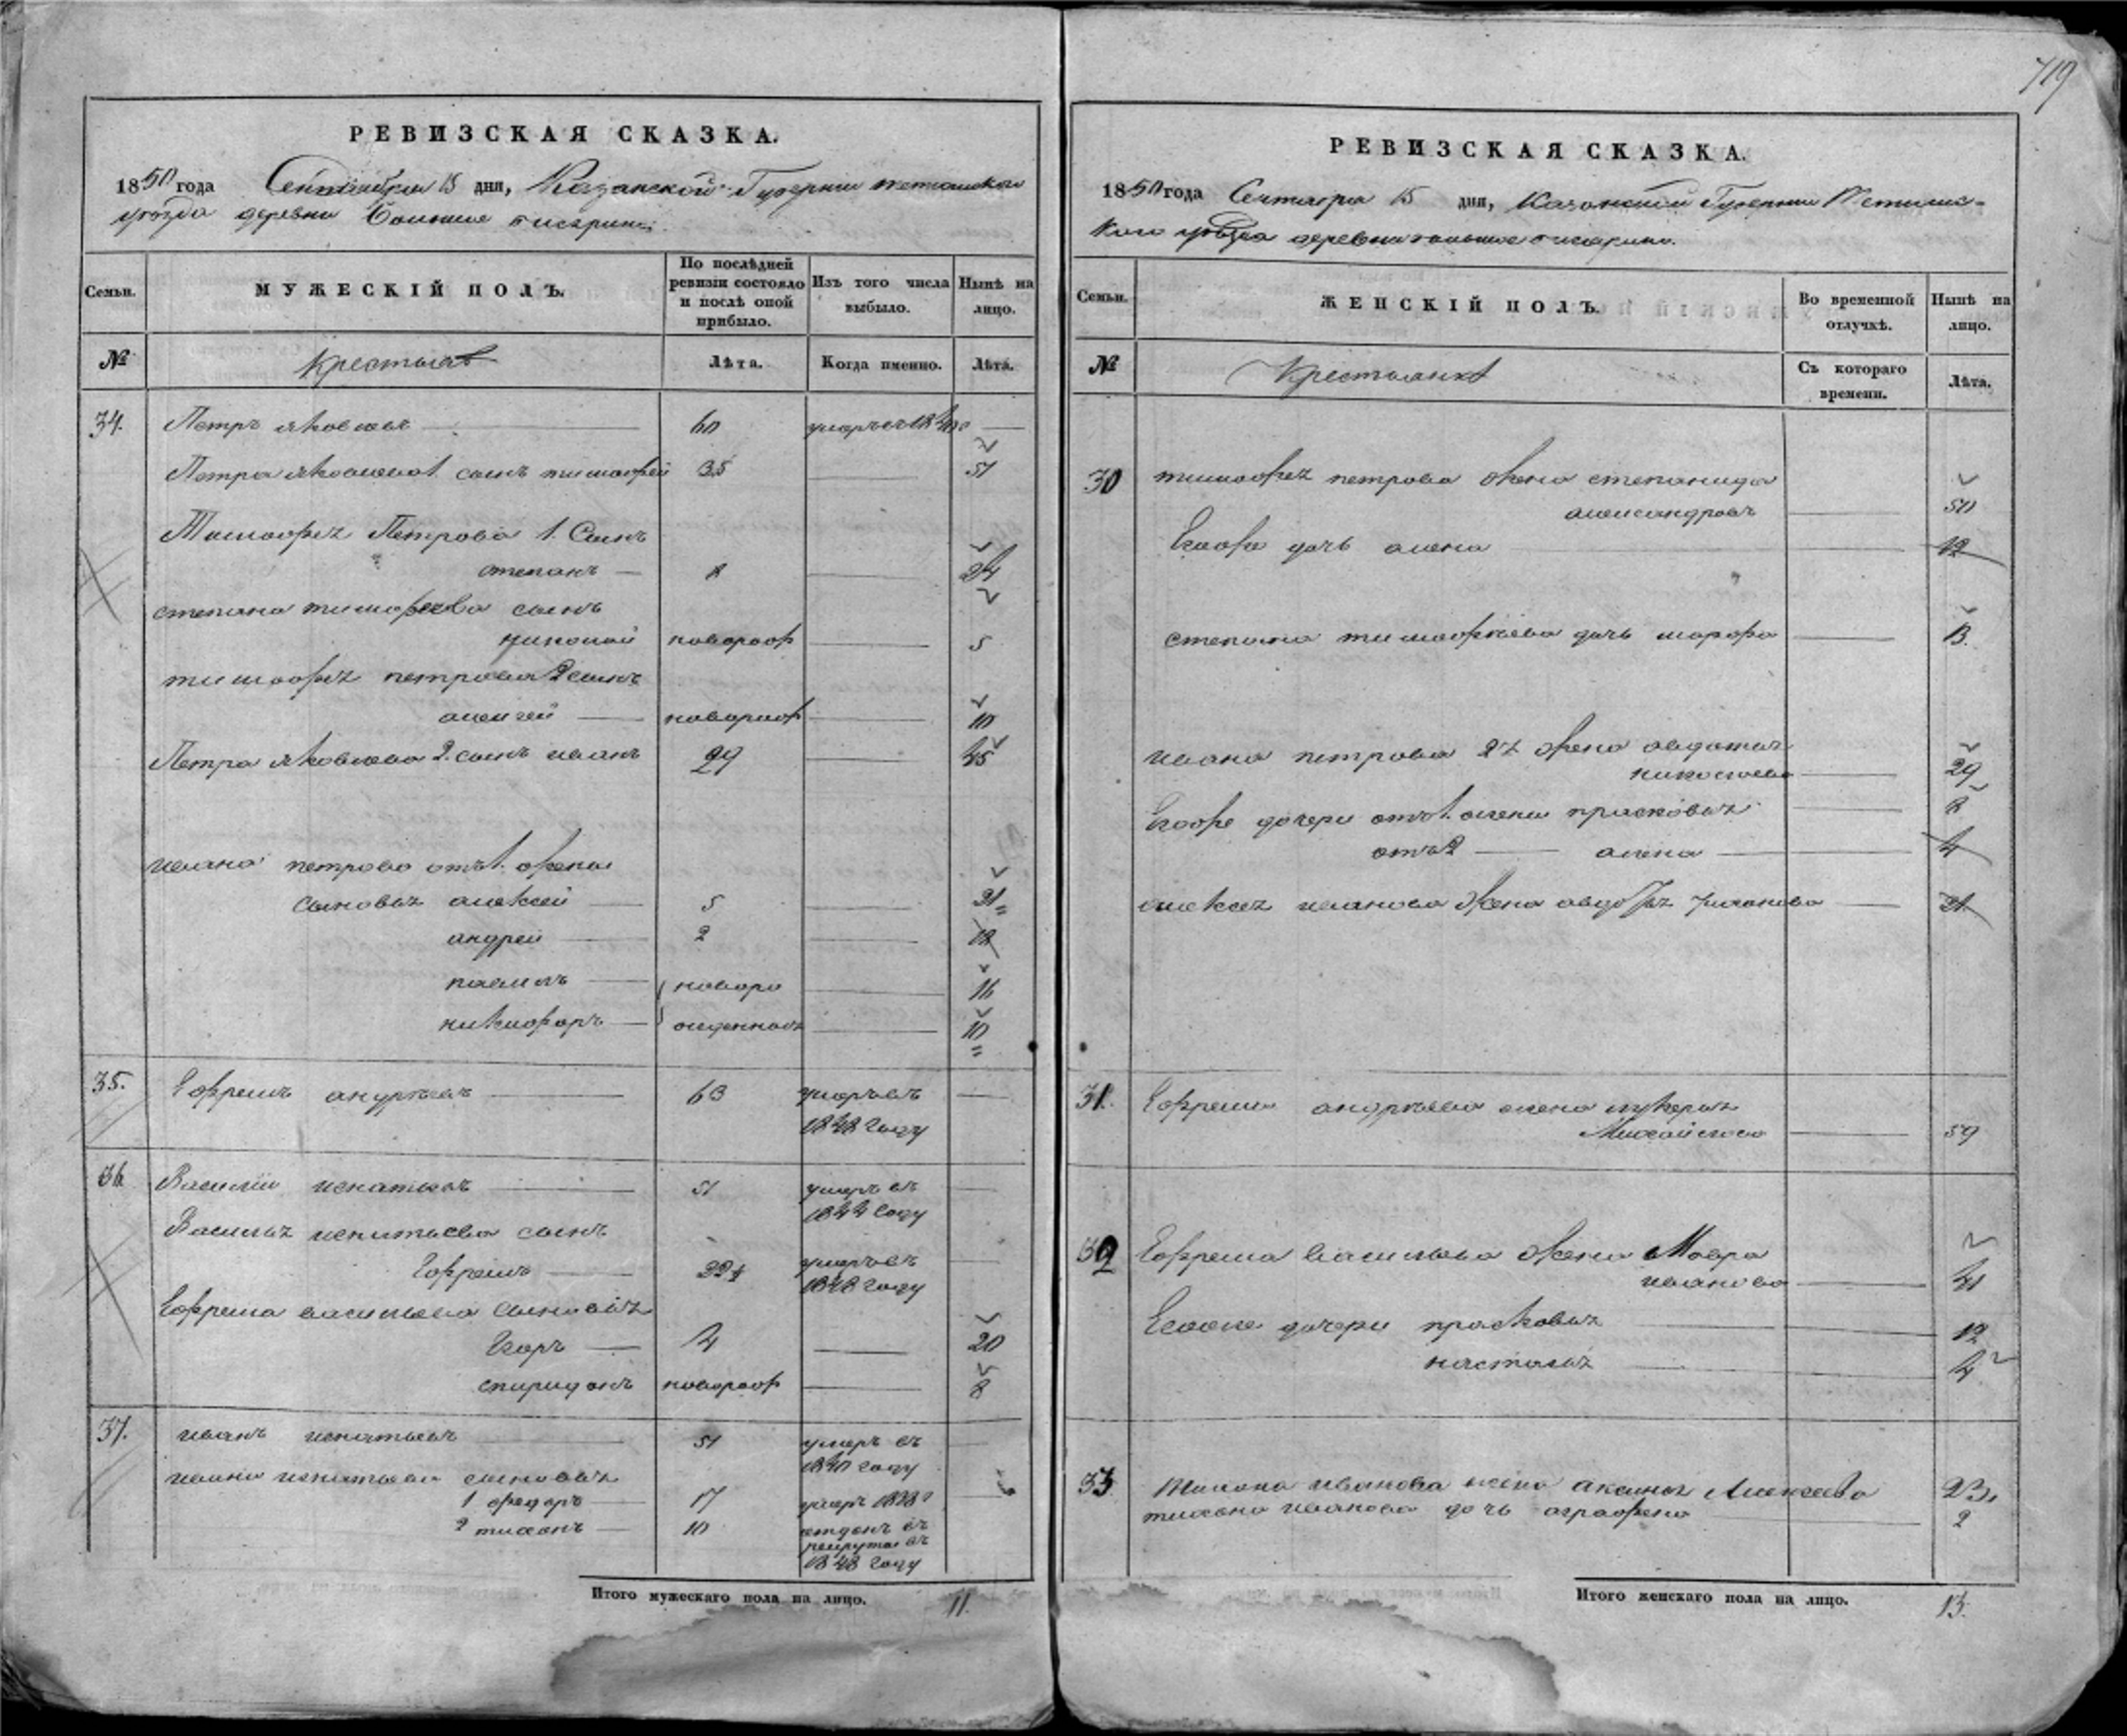 719
РЕВИЗСКАЯ СКАЗКА.
1850 года Сентября 15 дня, Казанской Губернии тетюшскаго
уѣзда деревни Большие
Семьи.
МУЖЕСКІЙ ПОЛЪ.
По послѣдней ревизіи состояло и послѣ оной прибыло.
Изъ того числа выбыло.
Нынѣ на лицо.
№
Крестьянъ
Лѣта.
Когда именно.
Лѣта.
34. Петръ яковлевъ 60 умеръ въ 1840
Петра яковлева 1. сынъ тимофей 35 51
Тимофея Петрова 1. Сынъ
степанъ 8 24
степана тимофеева сынъ
николай новорож 5
тимофея петрова 2 сынъ
алексей новорож 10
Петра яковлева 2. сынъ иванъ 29 45
ивана петрова отъ 1. жены
сыновья алексей 5 21
андрей 2 18
павилъ новоро 16
никифоръ жденныя 10
35. Ефремъ андреевъ 63 умеръ въ
1848 году
36 Василий игнатьевъ 51 умеръ въ
1844 году
Василья игнатьева сынъ
Ефремъ 22½ умеръ въ
1848 году
Ефрема васильева сыновья
Егоръ 4 20
спиридонъ новорож 8
37. иванъ игнатьевъ 51 умеръ въ
1840 году
ивана игнатьева сыновья
1 федоръ 17 умеръ 1838
2 тихонъ 10 отданъ въ
рекруты въ
1848 году
Итого мужескаго пола на лицо. 11.
РЕВИЗСКАЯ СКАЗКА.
1850 года Сентября 15 дня, Казанской Губернии Тетюшс-
каго уѣзда деревни большие
Семьи.
ЖЕНСКІЙ ПОЛЪ.
Во временной отлучкѣ.
Нынѣ на лицо.
№
Крестьянки
Съ котораго времени.
Лѣта.
30 тимофея петрова жена степанида
александрова 50
Егоже дочь алена 12
степана тимофеева дочь марфа 13.
ивана петрова 2я жена авдотья
николаева 29
Егоже дочери отъ 1. жены прасковья 8
отъ 2 алена 4
алексея иванова жена 21
31. Ефрема андреева жена лукерья
Михайлова 59
32 Ефрема васильева жена Мавра
иванова 41
Егоже дочери прасковья 12
настасья 4
33 Тихона иванова жена аксинья Алексеева 23
тихона иванова дочь аграфена 2
Итого женскаго пола на лицо. 13.